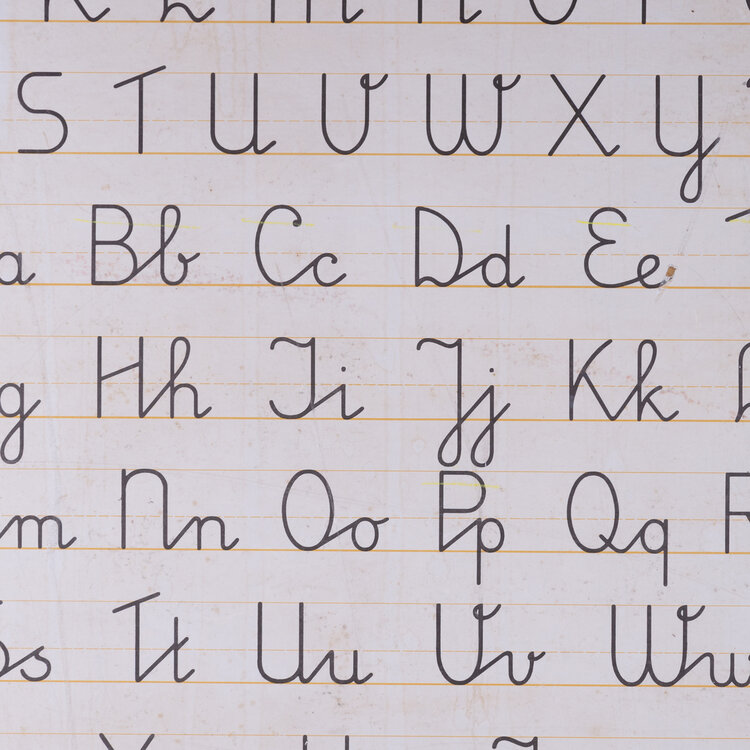 S T U V W X Y
a Bb Cc Dd Ee
g Hh Ii Jj Kk
m Nn Oo Pp Qq R
s Tt Uu Vv Ww